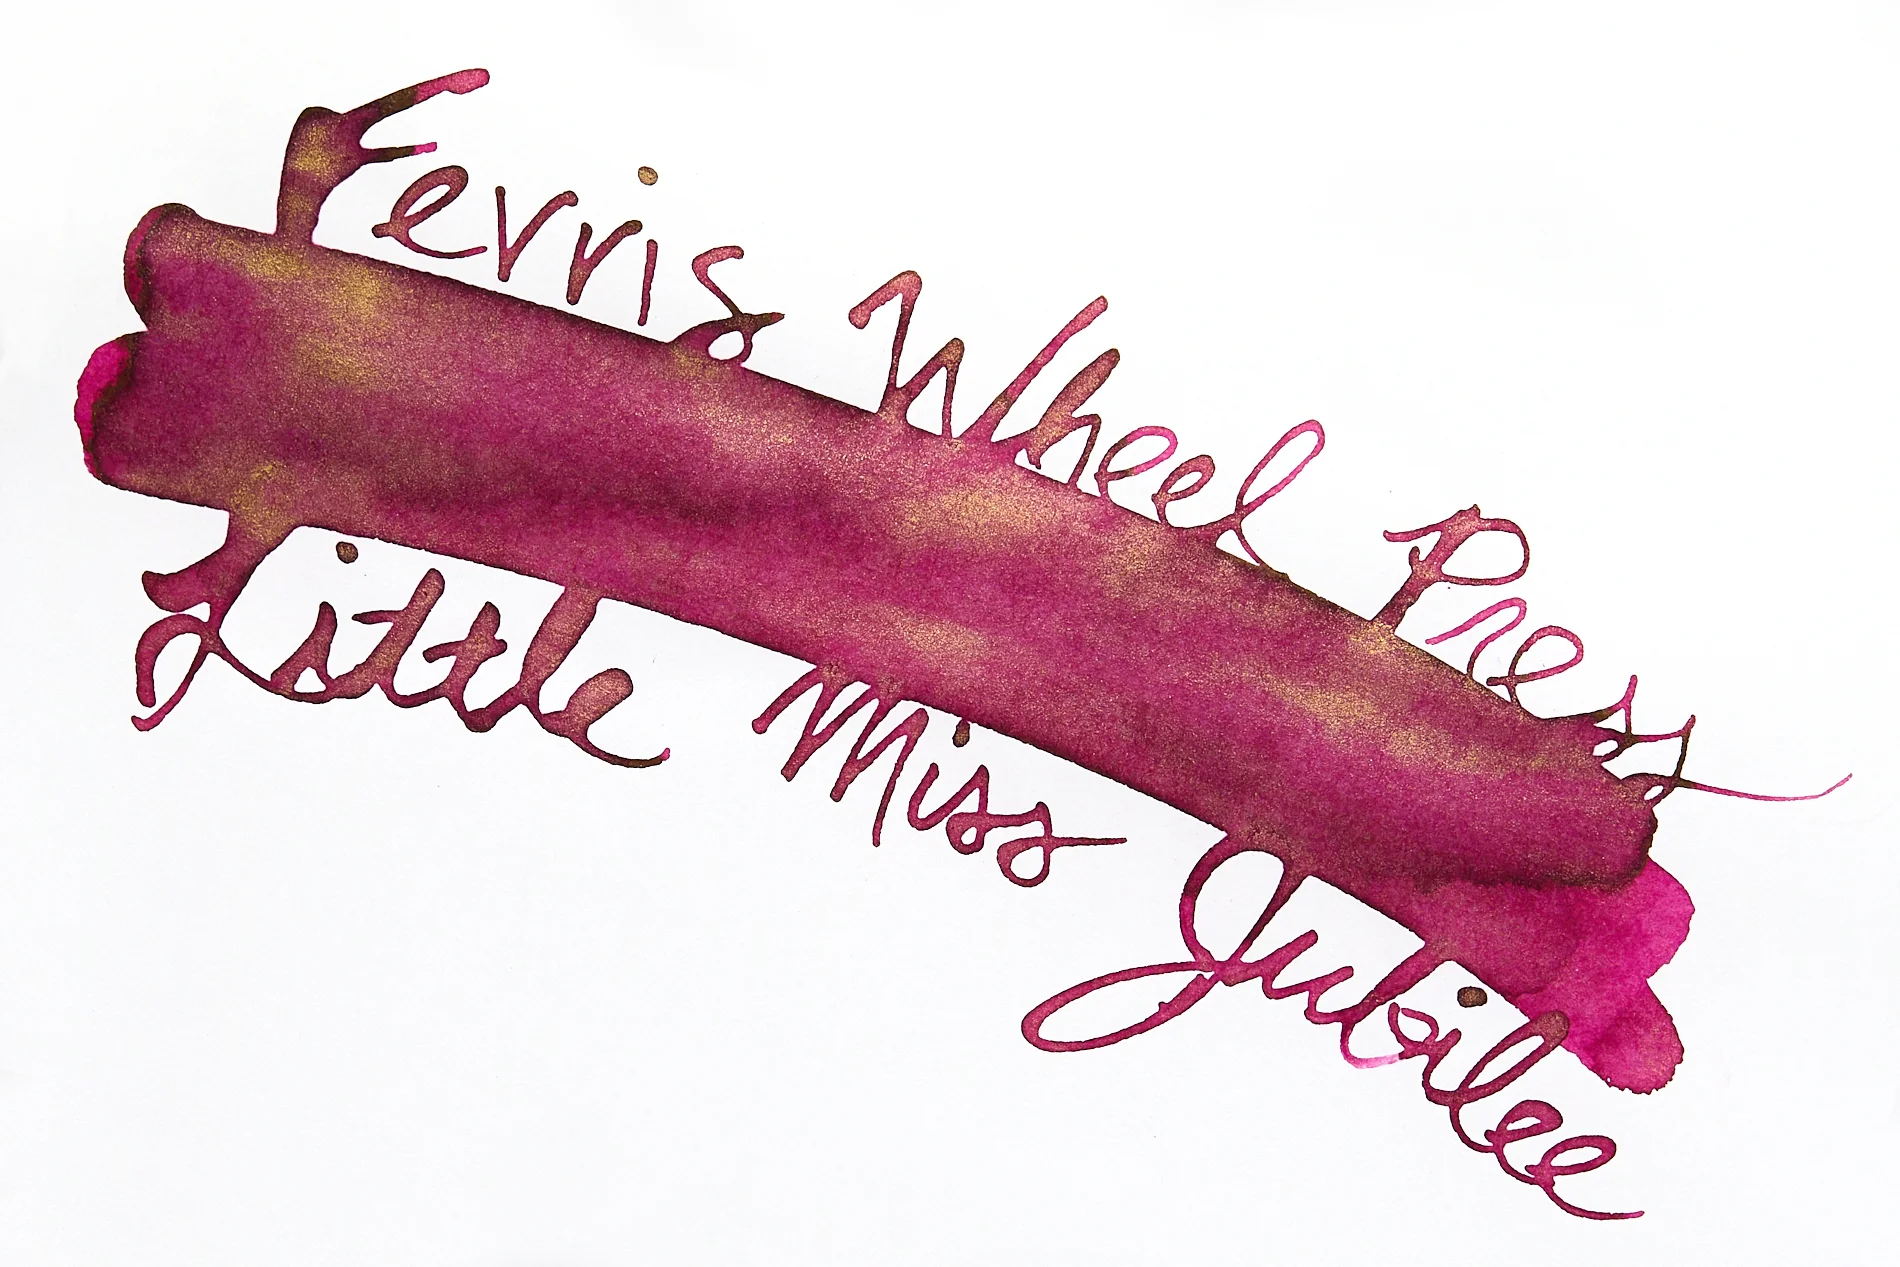 Ferris Wheel Press
Little Miss Jubilee